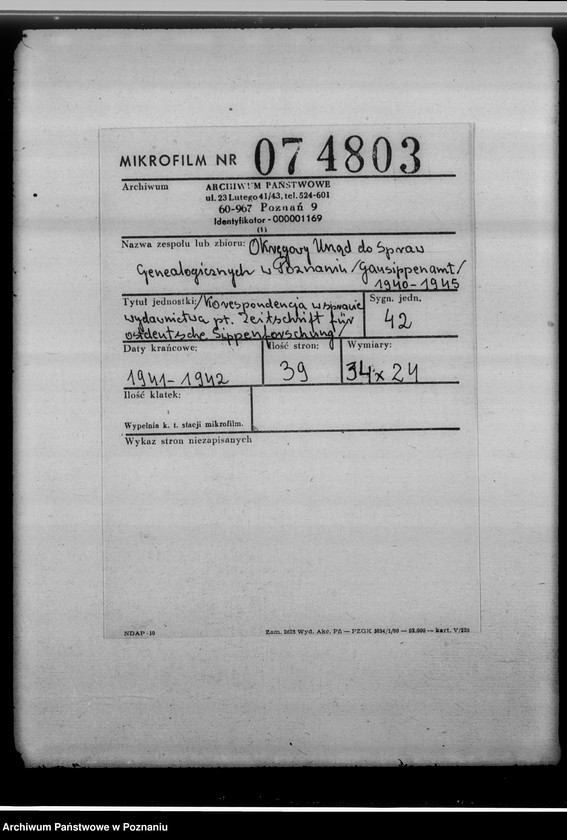 MIKROFILM NR 074803
Archiwum ARCHIWUM PAŃSTWOWE
ul. 23 Lutego 41/43, tel. 524-601
60-967 Poznań 9
Identyfikator - 000001169
(1)
Nazwa zespołu lub zbioru: Okręgowy Urząd do Spraw
Genealogicznych w Poznaniu /Gausippenamt/
1940-1945
Tytuł jednostki: /Korespondencja w sprawie
wydawnictwa pt. Zeitschrift für
ostdeutsche Sippenforschung/
Sygn. jedn.
42
Daty krańcowe:
1941-1942
Ilość stron:
39
Wymiary:
34 x 24
Ilość klatek:
Wypełnia k. t. stacji mikrofilm.
Wykaz stron niezapisanych
NDAP-10
Zam. Wyd. Akc. Pń — PZGK — kart.
Archiwum Państwowe w Poznaniu